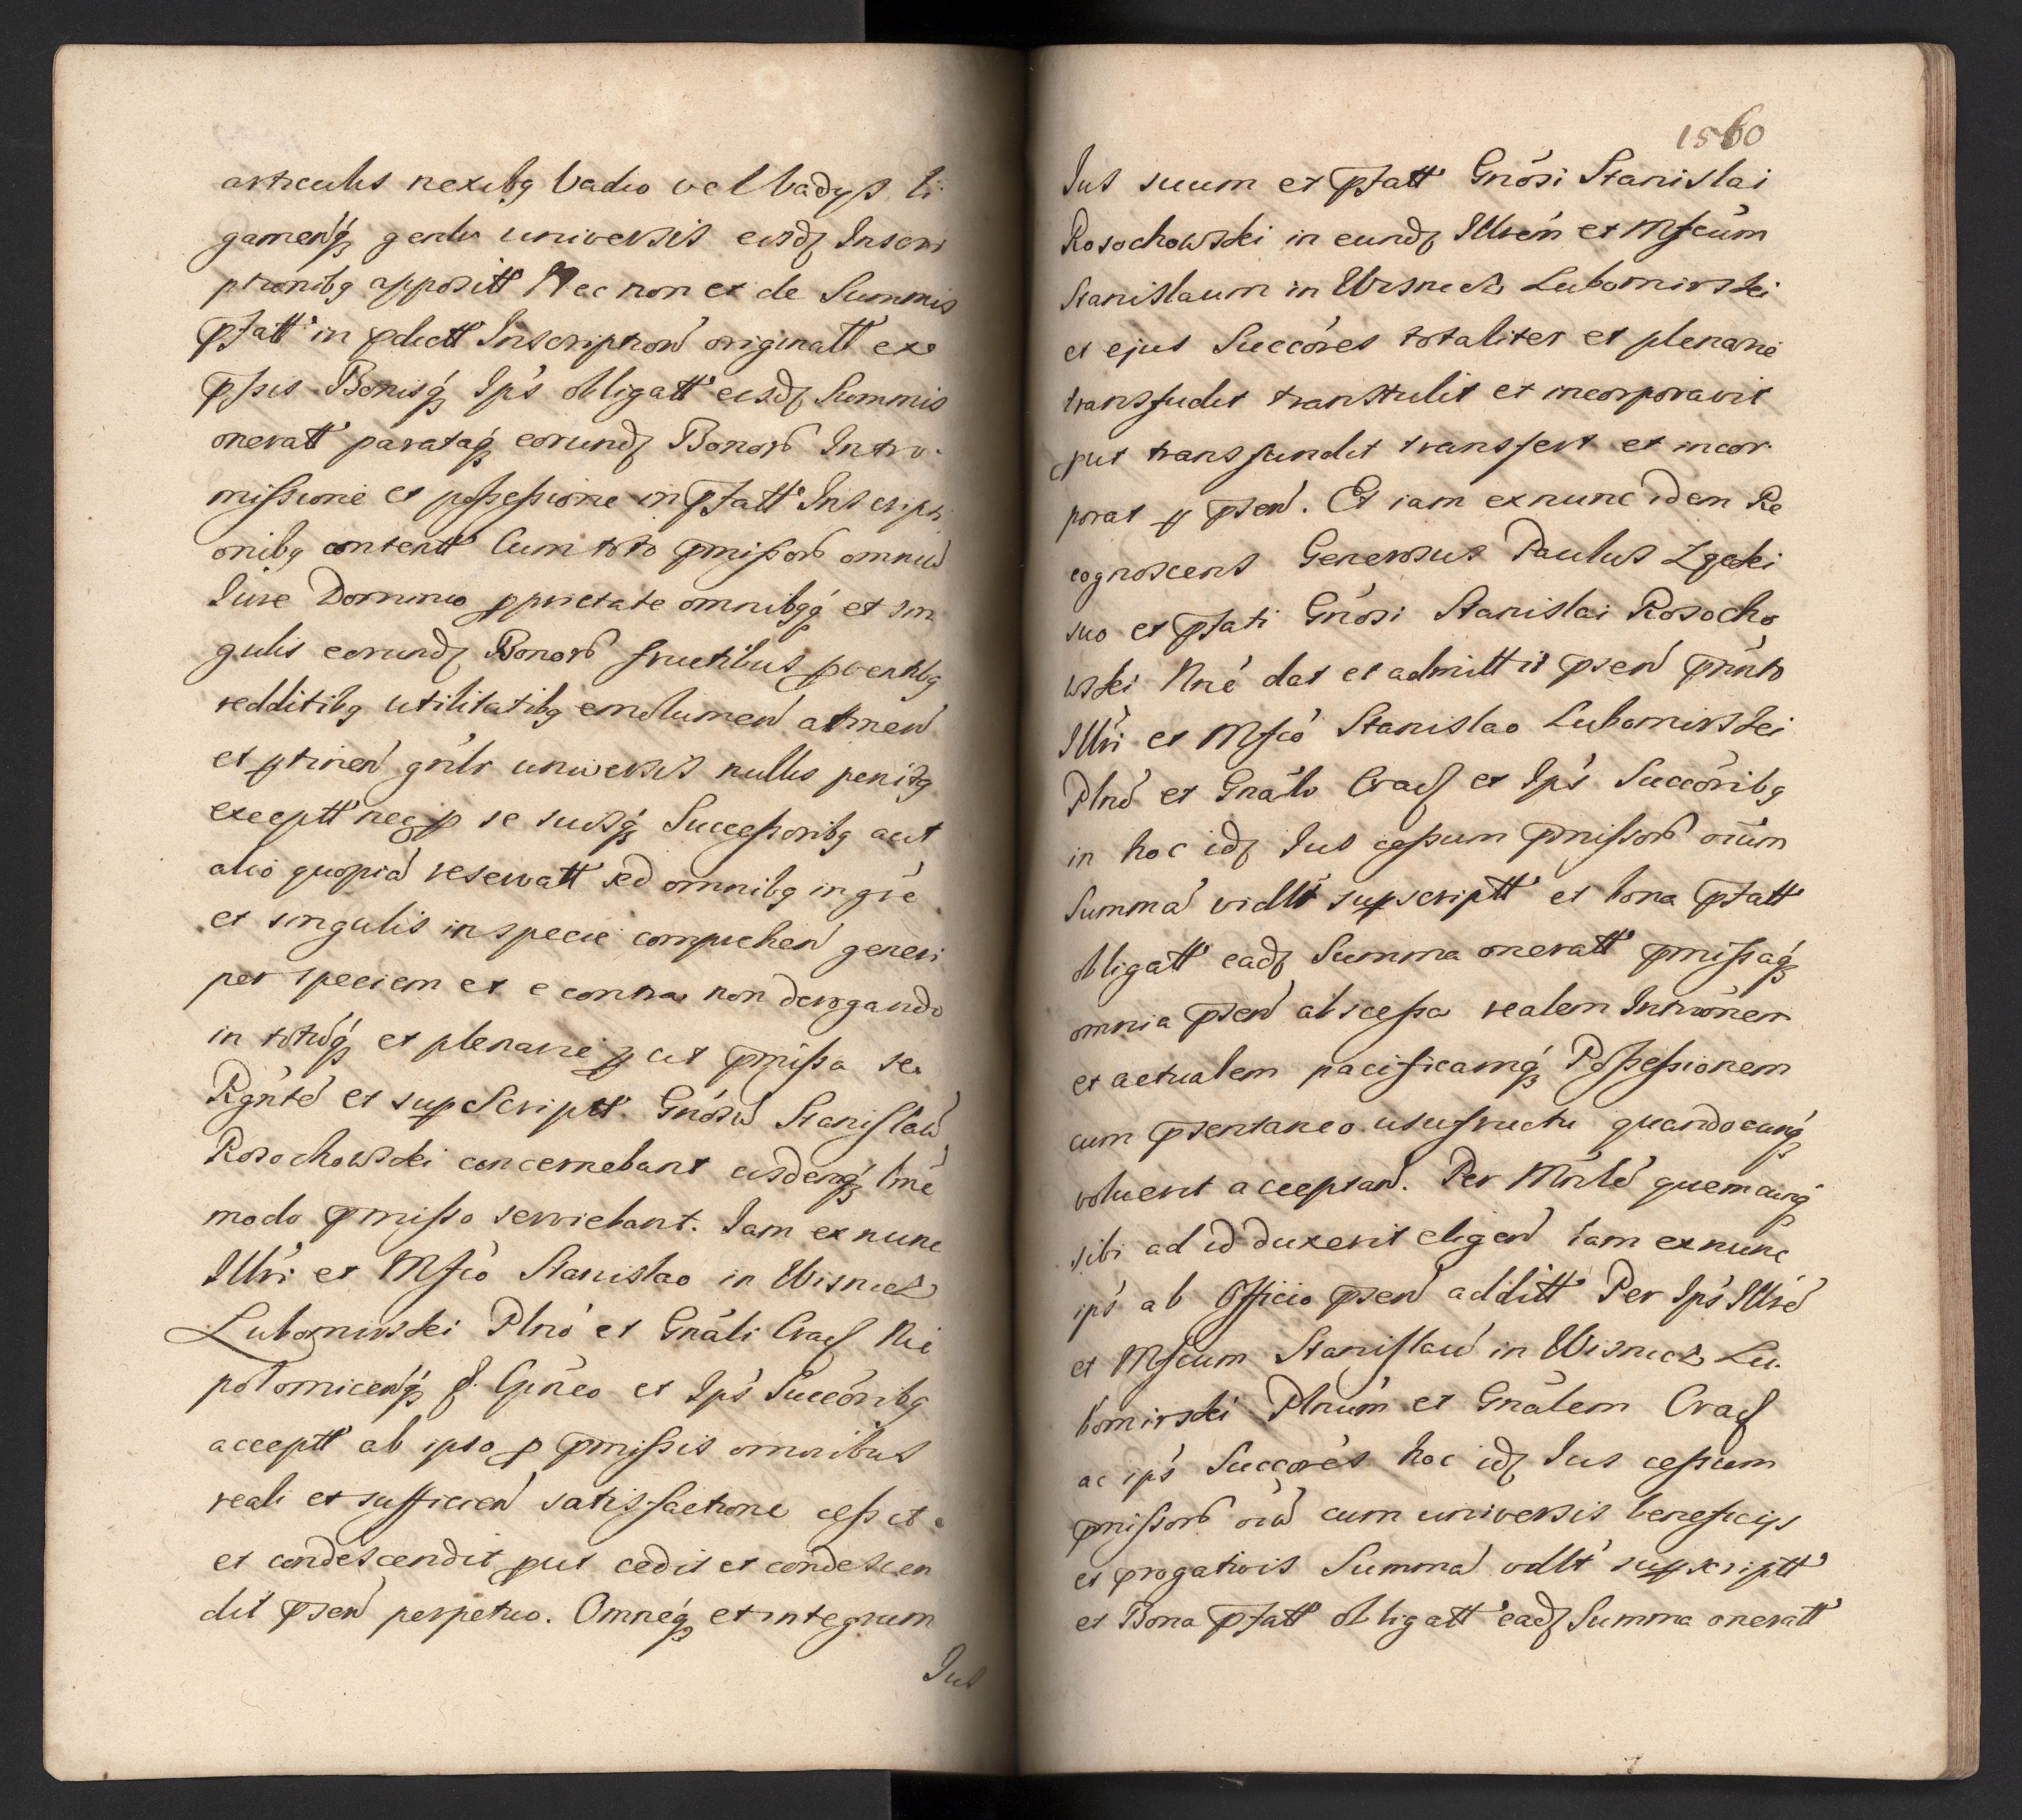 articulis nexibq Vadio vel Vadys li
gamenq genlr universis eisdz Inscri
ptionibq apposit Nec non et de Summis
pfatt in pdictt Inscription originalt ex
pssis Bonisq Ips obligatt eisdz Summis
oneratt parataq eorundz Bonor Intro-
missione et possessione in pfatt Inscripti
onibq content Cum toto pmissor omniu
Iure Dominio pprietate omnibqq et sin
gulis eorundz Bonor fructibus pventibq
redditibq utilitatibq emolumen attinen
et ptinen gnlr universis nullis penitq
exceptt neq p se suisq Successoribq aut
alio quopia reservatt sed omnibq in gre
et singulis in specie comprehen generi
per speciem et e contra non derogando
in totuq et plenarie put pmissa se
Rgnte et supscriptt Gnosu Stanislau
Rosochowski concernebant eisdemq bne
modo pmisso serviebant. Iam ex nunc
Illri et Mfco Stanislao in Wisnicz
Lubomirski Plno et Gnali Cracz Nie
polomicenq f. Gineo et Ips Succoribq
acceptt ab ipso p pmissis omnibus
reali et sufficien satisfactione cessit
et condescendit put cedit et condescen
dit psen perpetuo. Omneq et integrum
Jus
1560
Jus suum et pfatt Gnosi Stanislai
Rosochowski in eundz Illren et Mfcum
Stanislaum in Wisnicz Lubomirski
et ejus Succores totaliter et plenarie
transfudit transtulit et incorporavit
put transfundit transfert et incor
porat p psen. Et iam ex nunc idem Re
cognoscens Generosus Paulus Zgeski
suo et pfati Gnosi Stanislai Rosocho
wski Nne dat et admittit psen pnnto
Illri et Mfco Stanislao Lubomirski
Plno et Gnalo Cracz et Ips Succoribq
in hoc idz Jus cessum pmissor oium
Summa vidlt supscriptt et bona pfatt
obligatt eadz Summa oneratt pmissaq
omnia psen abscessa realem Intronem
et actualem pacificamq Possessionem
cum psentaneo usufructu quandocunq
voluerit acceptan. Per Mnrle quemcunq
sibi ad id duxerit eligen iam ex nunc
ips ab Officio psen additt Per Ips Illre
et Mfcum Stanislau in Wisnicz Lu-
bomirski Plnum et Gnalem Cracz
ac ips Succores hoc idz Jus cessum
pmissor oiu cum universis beneficijs
et progativis Summa vdlt supscriptt
et Bona pfatt obligatt eadz Summa oneratt